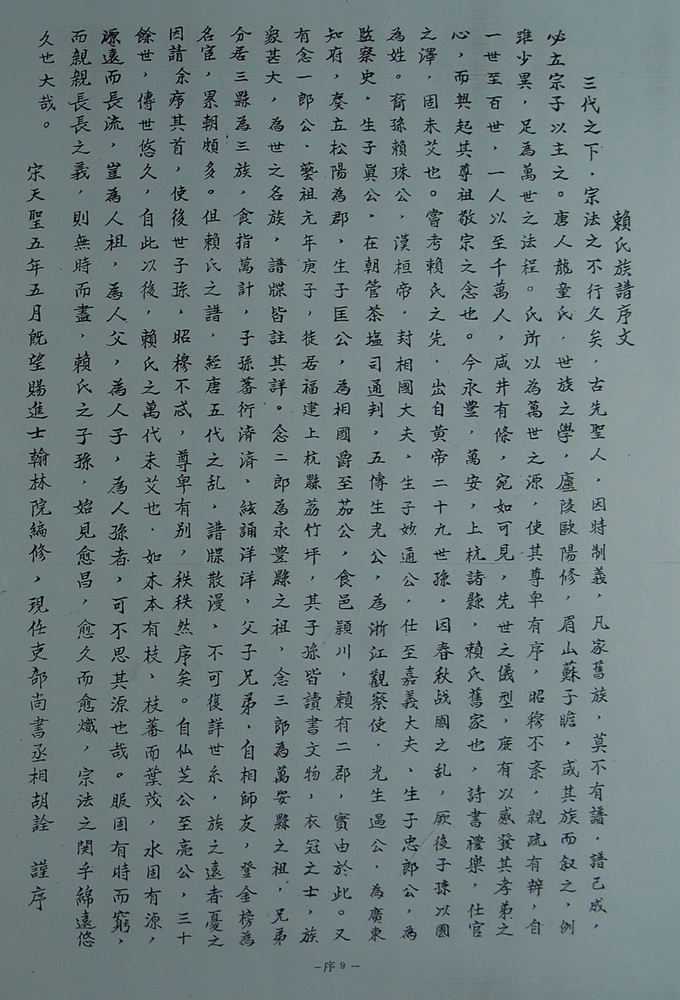 賴氏族譜序文
三代之下．宗法之不行久矣．古先聖人，因時制義，凡家舊族，莫不有譜．譜已成，
必立宗子以主之。唐人龍童氏，世族之學，廬陵歐陽修，眉山蘇子瞻，或其族而叙之，例
雖少異，足為萬世之法程。氏所以為萬世之源，使其尊卑有序，昭穆不紊，親疏有辨，自
一世至百世，一人以至千萬人，咸井有條，宛如可見，先世之儀型，庶有以感發其孝弟之
心，而興起其尊祖敬宗之念也。今永豐，萬安，上杭諸縣，賴氏舊家也，詩書禮樂，仕官
之澤，固未艾也。嘗考賴氏之先，出自黃帝二十九世孫，因春秋战國之乱，厥後子孫以國
為姓。裔孫賴珠公，漢桓帝，封相國大夫，生子妙通公，仕至嘉義大夫，生子忠郎公，為
監察史，生子眞公，在朝管茶塩司通判，五傳生光公，為浙江觀察使．光生遇公，為廣東
知府，奏立松陽為郡，生子匡公，為相國爵至茄公，食邑潁川，賴有二郡，實由於此。又
有念一郎公．藝祖元年庚子，徙居福建上杭縣荔竹坪，其子孫皆讀書文物，衣冠之士，族
衆甚大，為世之名族，譜牒皆註其詳。念二郎為永豐縣之祖，念三郎為萬安縣之祖，兄弟
分居三縣為三族，食指萬計，子孫蕃衍濟濟，絃誦洋洋，父子兄弟，自相師友，登金榜為
名宦，累朝頗多。但賴氏之譜，經唐五代之乱，譜牒散漫，不可復詳世系，族之遠者憂之
因請余席其首，使後世子孫，昭穆不忒，尊卑有別，秩秩然序矣。自仙芝公至亮公，三十
餘世，傳世悠久，自此以後，賴氏之萬代未艾也．如木本有枝，枝蕃而葉茂，水固有源，
源遠而長流，豈為人祖，為人父，為人子，為人孫者，可不思其源也哉。服固有時而窮，
而親親長長之義，則無時而盡，賴氏之子孫，始見愈昌，愈久而愈熾，宗法之関乎綿遠悠
久也大哉。
宗天聖五年五月既望賜進士翰林院編修，現任吏部尚書丞相胡詮　謹序
–序 9 –